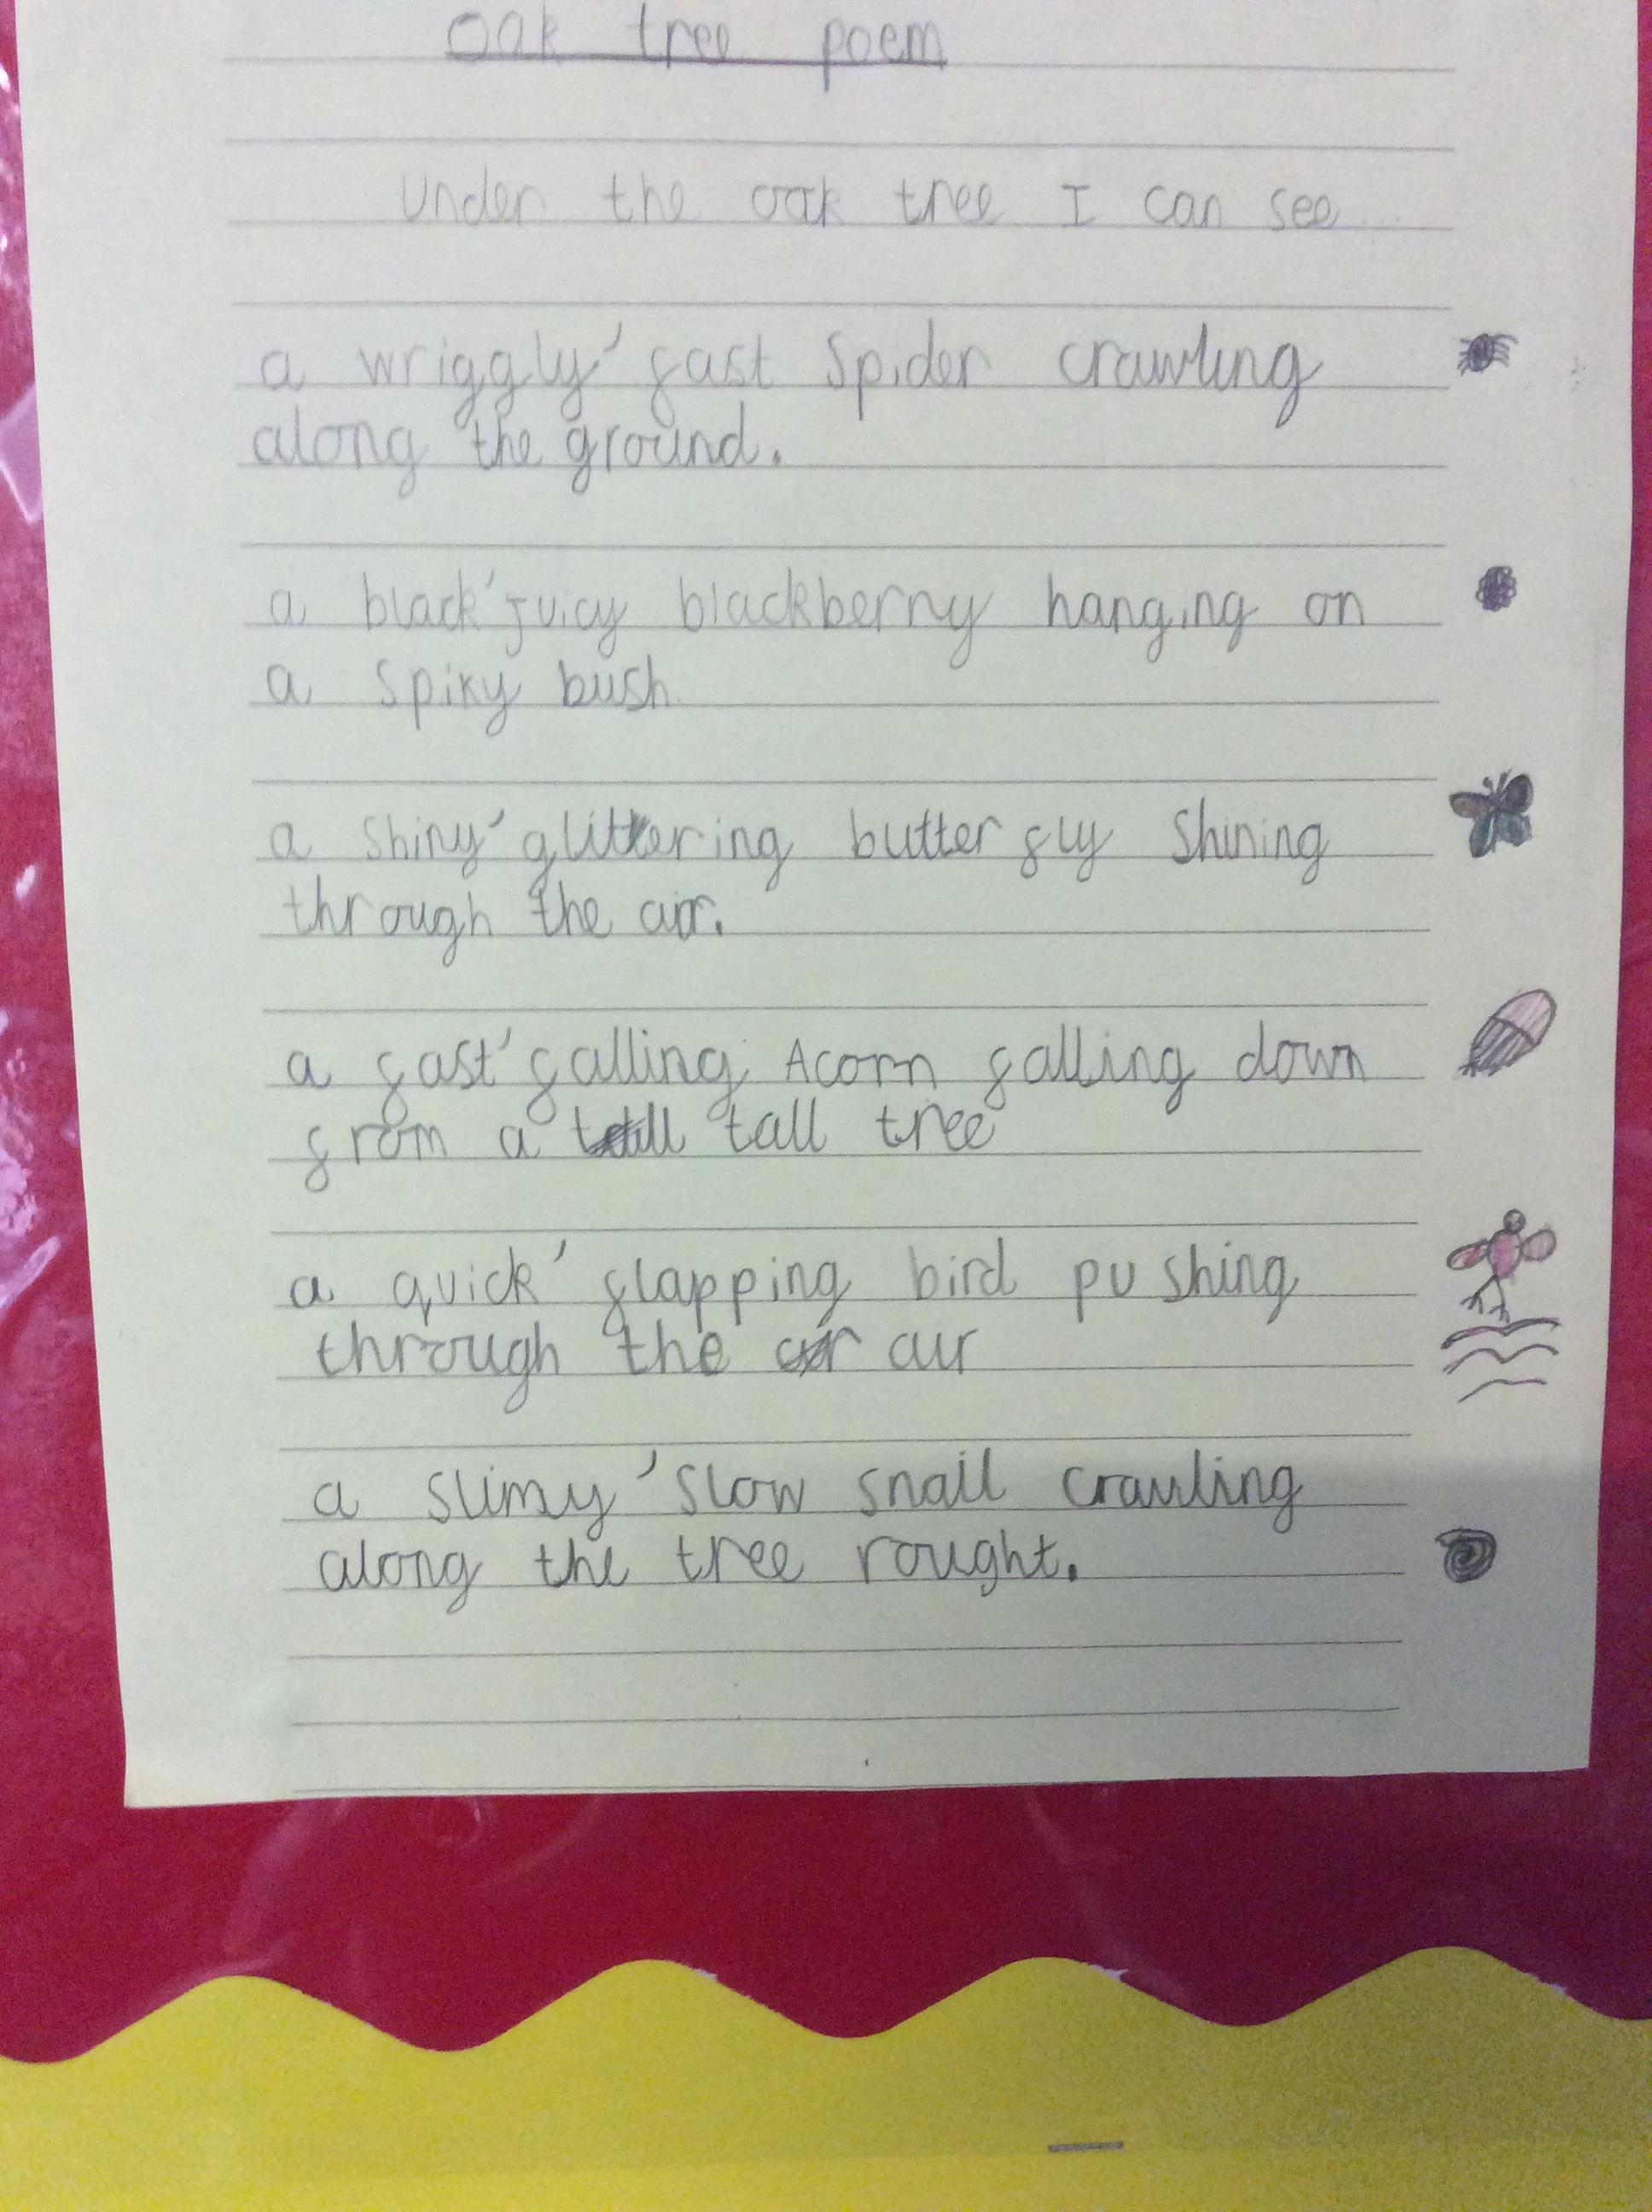 Oak tree poem
Under the oak tree I can see
a wriggly' fast Spider crawling
along the ground.
a black' juicy blackberry hanging on
a spiky bush
a shiny' glittering butterfly Shining
through the air.
a fast' falling Acorn falling down
from a tall tree
a quick' flapping bird pushing
through the air
a slimy 'slow snail crawling
along the tree rought.